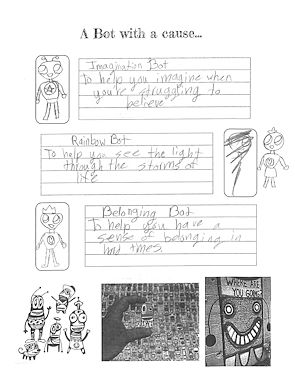 A Bot with a cause...
Imagination Bot
To help you imagine when
you're struggling to
believe
Rainbow Bot
To help you see the light
through the storms of
life
Belonging Bot
To help you have a
sense of belonging in
hrd times.
WHERE ARE
YOU GOING?